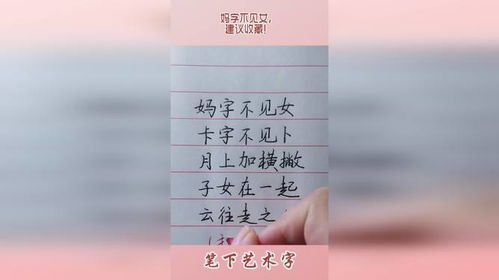 妈字不见女,
建议收藏!
妈字不见女
卡字不见卜
月上加横撇
子女在一起
云往走之
笔下艺术字